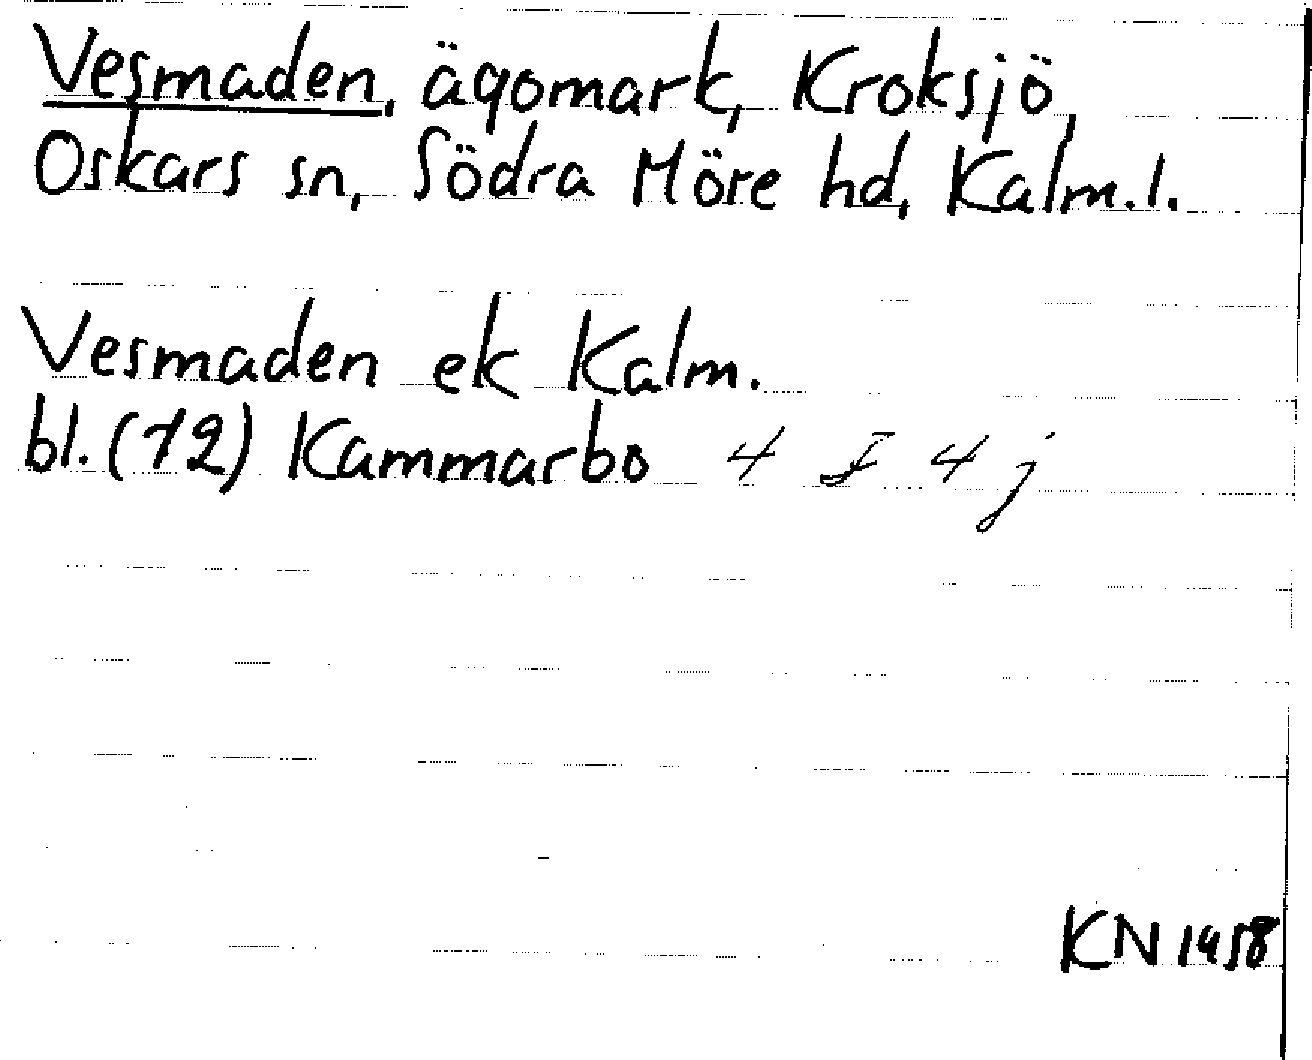 Vesmaden, ägomark, Kroksjö,
Oskars sn, Södra Möre hd, Kalm.l.
Vesmaden ek Kalm.
bl. (12) Kammarbo 4 F 4 j
KN 1958